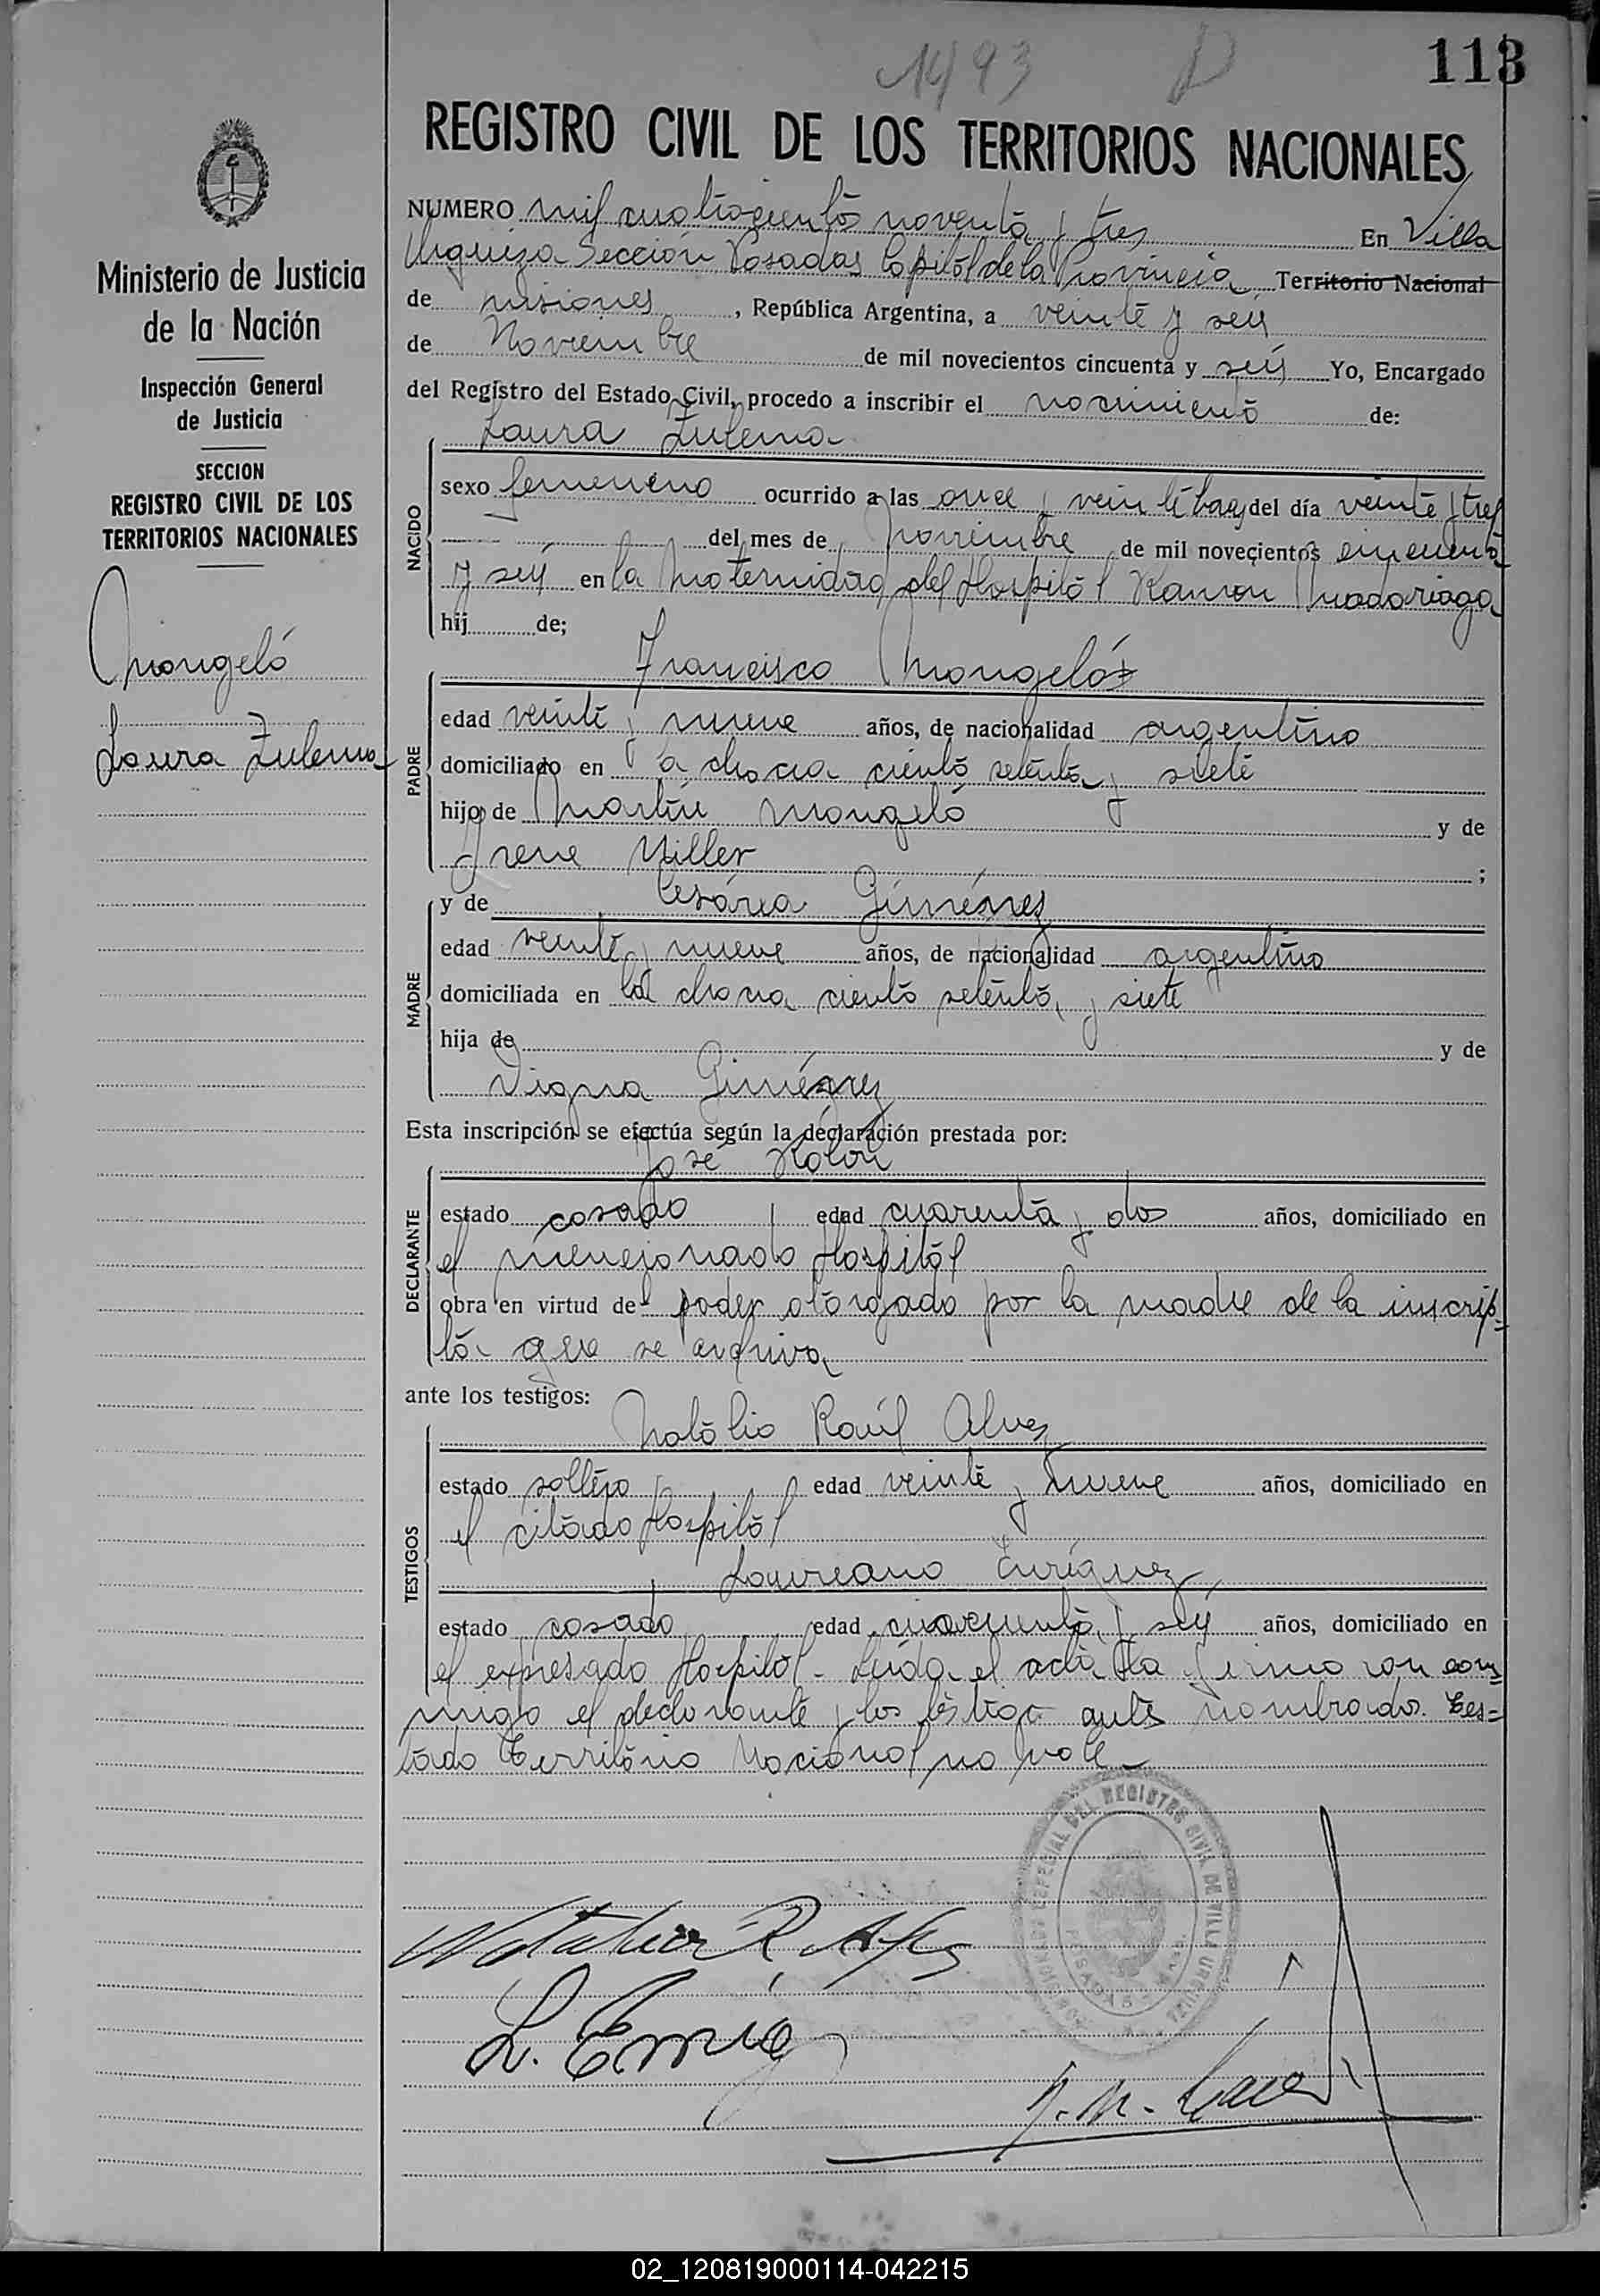 1493 D
113
REGISTRO CIVIL DE LOS TERRITORIOS NACIONALES
Ministerio de Justicia
de la Nación
Inspección General
de Justicia
SECCION
REGISTRO CIVIL DE LOS
TERRITORIOS NACIONALES
Mongeló
Laura Zulema
NUMERO mil cuatrocientos noventa y tres En Villa
Urquiza Sección Posadas Capital de la Provincia Territorio Nacional
de misiones, República Argentina, a veinte y seis
de Noviembre de mil novecientos cincuenta y seis Yo, Encargado
del Registro del Estado Civil, procedo a inscribir el nacimiento de:
Laura Zulema
NACIDO
sexo femenino ocurrido a las once y veinte horas del día veinte y tres
del mes de Noviembre de mil novecientos cincuenta
y seis en la Maternidad del Hospital Ramon Madariaga
hij de;
Francisco Mongeló
PADRE
edad veinte y nueve años, de nacionalidad argentino
domiciliado en la chacra ciento setenta y siete
hijo de Martín Mongeló y de
Irene Miller ;
y de Cesárea Giménez
MADRE
edad veinte y nueve años, de nacionalidad argentino
domiciliada en la chacra ciento setenta y siete
hija de y de
Digna Giménez
Esta inscripción se efectúa según la declaración prestada por:
José
DECLARANTE
estado casado edad cuarenta y dos años, domiciliado en
el mencionado Hospital
obra en virtud del poder otorgado por la madre de la inscrip=
ta que se archiva
ante los testigos:
Natalio Raúl Alves
TESTIGOS
estado soltero edad veinte y nueve años, domiciliado en
el citado Hospital
y Laureano Enríquez
estado casado edad cuarenta y seis años, domiciliado en
el expresado Hospital - Leída el acta la firmaron con=
migo el declarante y los testigos antes nombrados. Tes=
tado Territorio Nacional no vale
Natalio R. Alves
L. Enríq
REGISTRO CIVIL DE VILLA URQUIZA
POSADAS
MISIONES
02_120819000114-042215